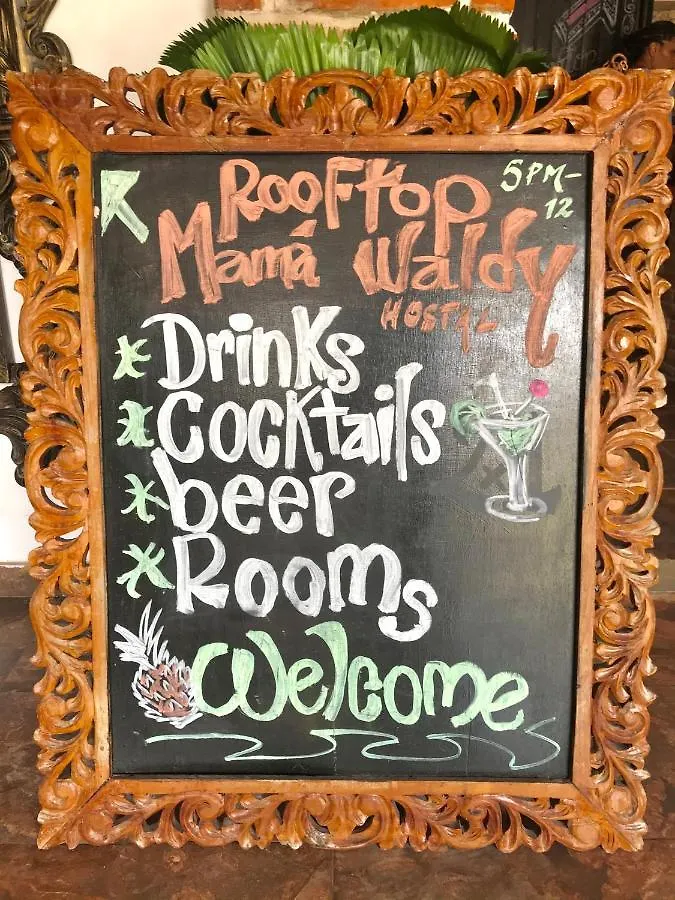 Rooftop
5PM-
12
Mamá Waldy
HOSTAL
* Drinks
* Cocktails
* beer
* Rooms
Welcome